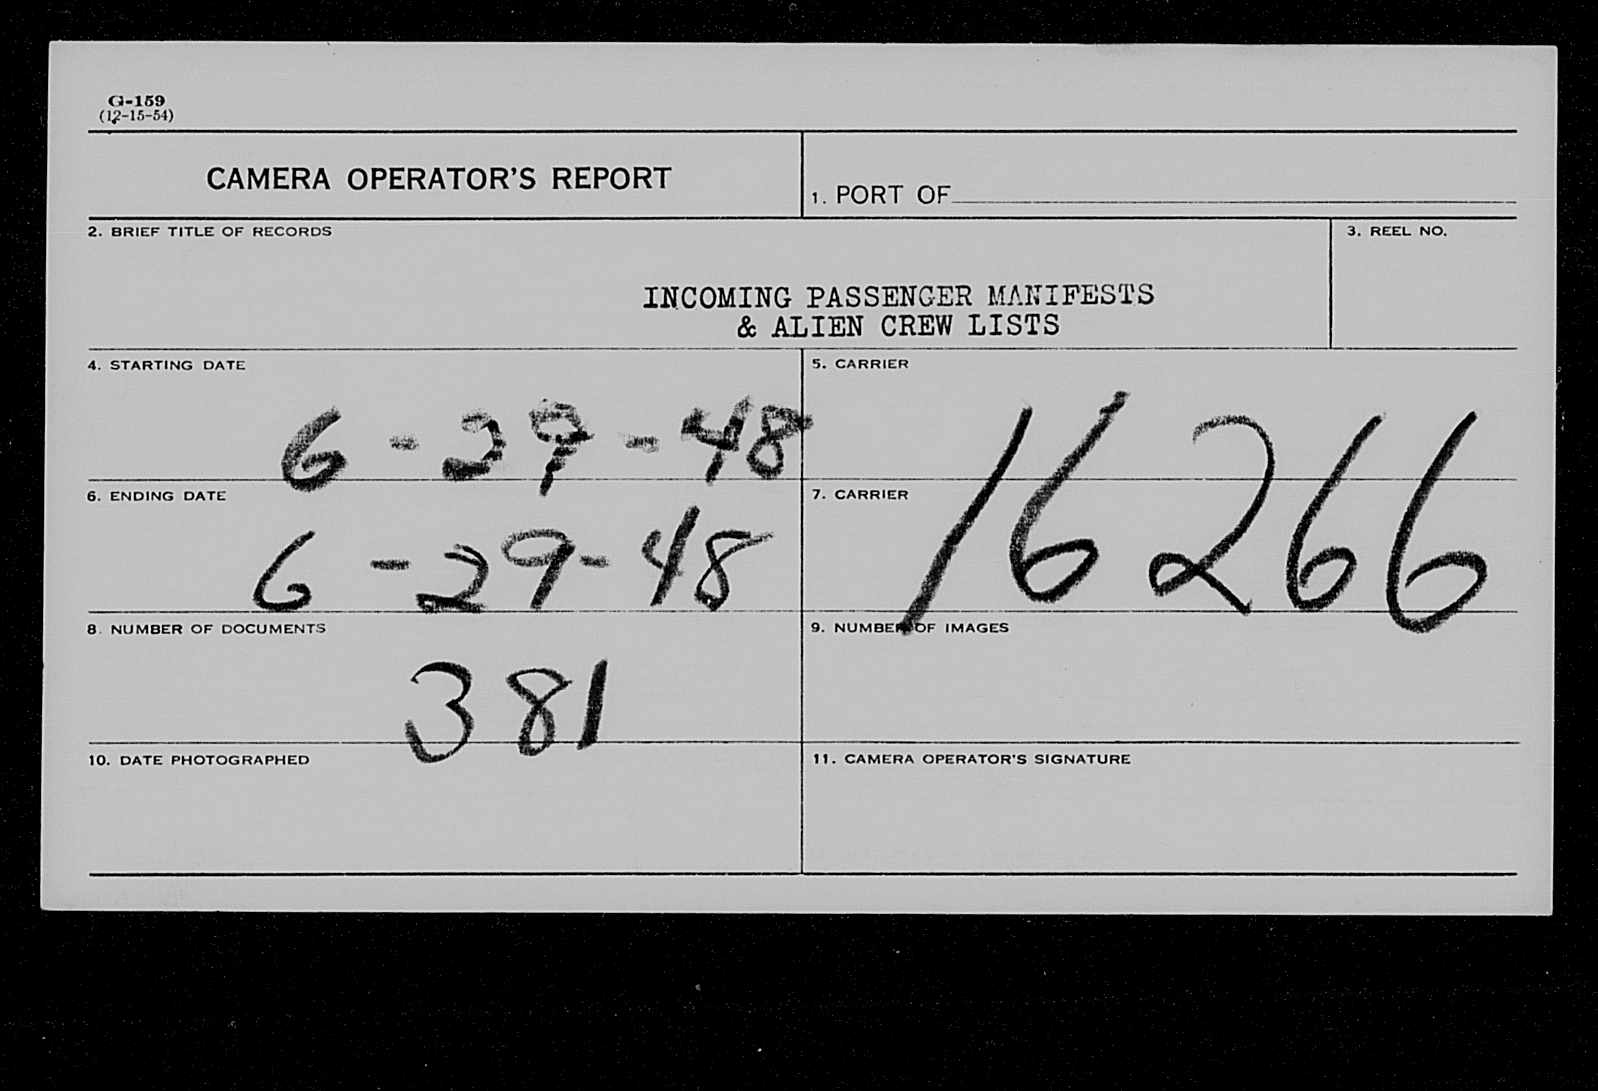 G-159
(12-15-54)
CAMERA OPERATOR'S REPORT
1. PORT OF
2. BRIEF TITLE OF RECORDS
3. REEL NO.
INCOMING PASSENGER MANIFESTS
& ALIEN CREW LISTS
4. STARTING DATE
6-29-48
5. CARRIER
16266
6. ENDING DATE
6-29-48
7. CARRIER
8. NUMBER OF DOCUMENTS
381
9. NUMBER OF IMAGES
10. DATE PHOTOGRAPHED
11. CAMERA OPERATOR'S SIGNATURE